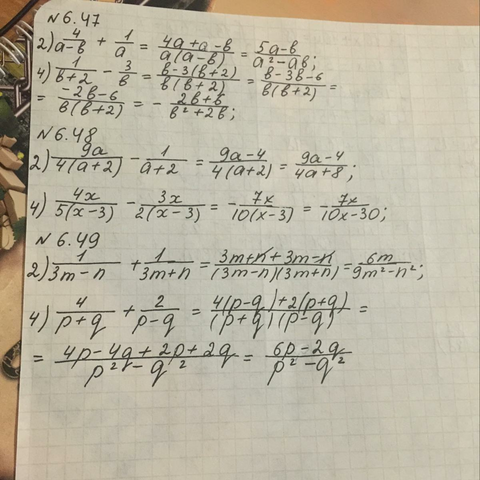 № 6.47
2) 4/(a-b) + 1/a = (4a+a-b)/(a(a-b)) = (5a-b)/(a²-ab);
4) 1/(b+2) - 3/b = (b-3(b+2))/(b(b+2)) = (b-3b-6)/(b(b+2)) =
= (-2b-6)/(b(b+2)) = - (2b+6)/(b²+2b);
№ 6.48
2) 9a/(4(a+2)) - 1/(a+2) = (9a-4)/(4(a+2)) = (9a-4)/(4a+8);
4) 4x/(5(x-3)) - 3x/(2(x-3)) = - 7x/(10(x-3)) = - 7x/(10x-30);
№ 6.49
2) 1/(3m-n) + 1/(3m+n) = (3m+n+3m-n)/((3m-n)(3m+n)) = 6m/(9m²-n²);
4) 4/(p+q) + 2/(p-q) = (4(p-q)+2(p+q))/((p+q)(p-q)) =
= (4p-4q+2p+2q)/(p²-q²) = (6p-2q)/(p²-q²)